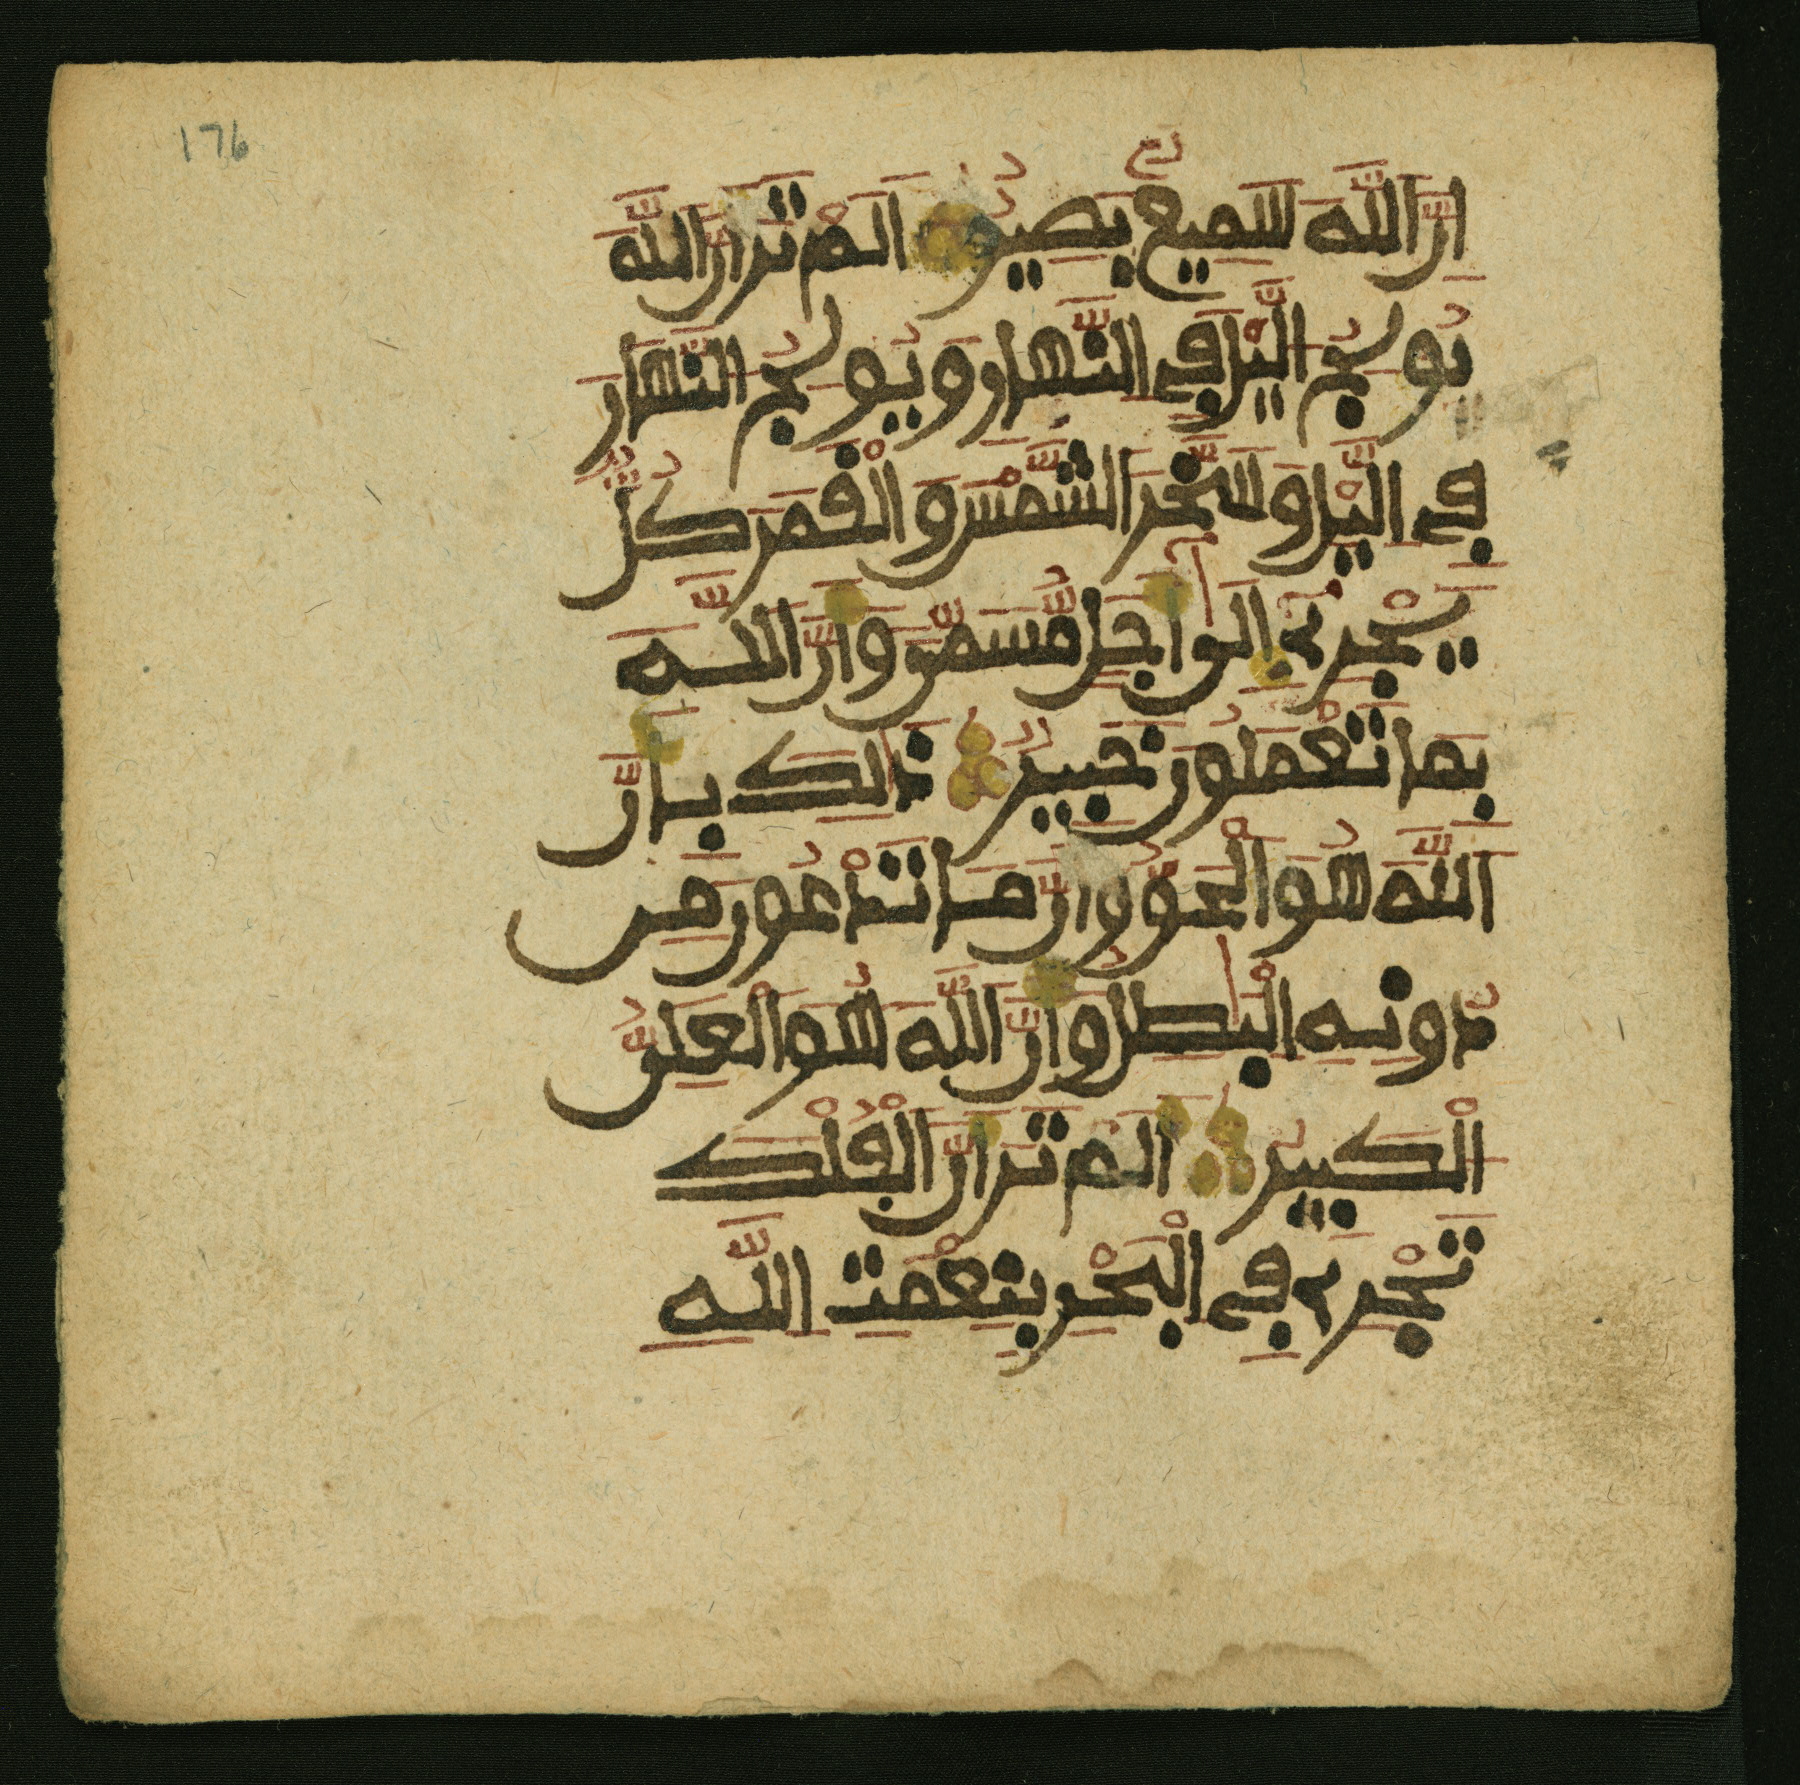 176
إِنَّ اللَّهَ سَمِيعٌ بَصِيرٌ أَلَمْ تَرَ أَنَّ اللَّهَ
يُولِجُ الَّيْلَ فِي النَّهَارِ وَيُولِجُ النَّهَارَ
فِي الَّيْلِ وَسَخَّرَ الشَّمْسَ وَالْقَمَرَ كُلٌّ
يَجْرِي إِلَىٰ أَجَلٍ مُّسَمًّى وَأَنَّ اللَّهَ
بِمَا تَعْمَلُونَ خَبِيرٌ ذَٰلِكَ بِأَنَّ
اللَّهَ هُوَ الْحَقُّ وَأَنَّ مَا تَدْعُونَ مِن
دُونِهِ الْبَٰطِلُ وَأَنَّ اللَّهَ هُوَ الْعَلِيُّ
الْكَبِيرُ أَلَمْ تَرَ أَنَّ الْفُلْكَ
تَجْرِي فِي الْبَحْرِ بِنِعْمَتِ اللَّهِ